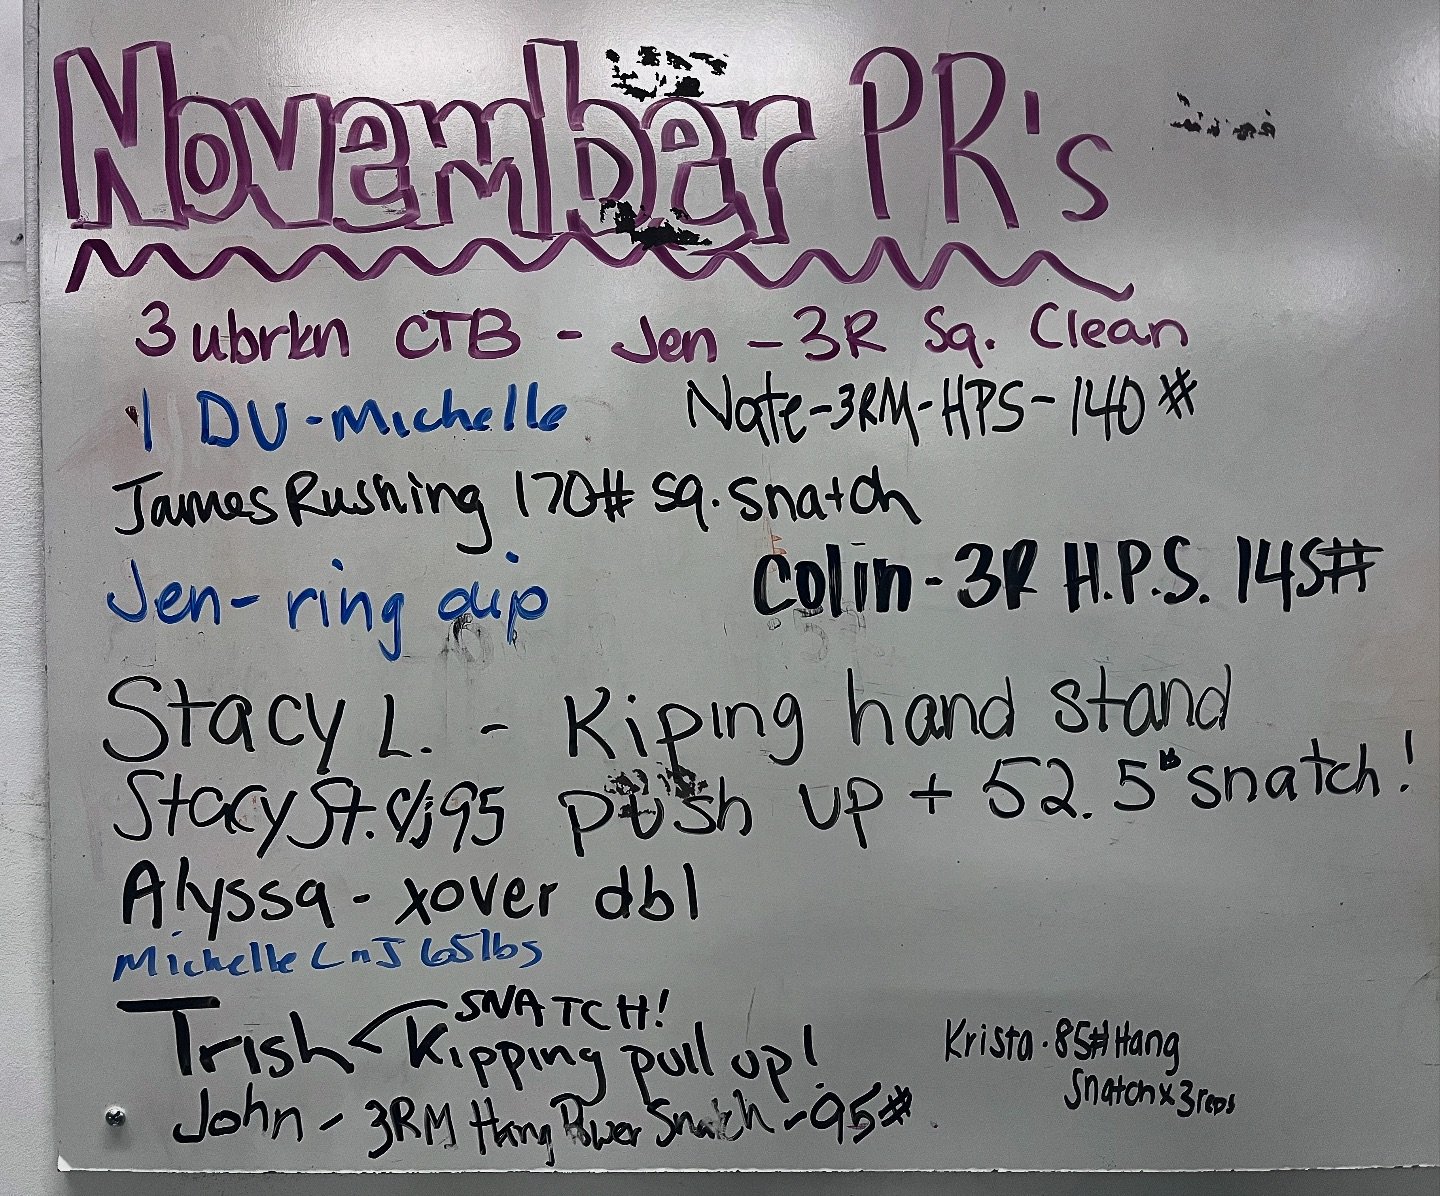 November PR's
3 ubrkn CTB - Jen - 3R Sq. Clean
1 DU - Michelle
Nate - 3RM - HPS - 140#
James Rushing 170# sq. snatch
Jen - ring dip
Colin - 3R H.P.S. 145#
Stacy L. - Kiping hand stand
push up + 52.5# snatch!
Stacy St. C/j 95
Alyssa - xover dbl
Michelle CnJ 65lbs
Trish SNATCH!
Kipping pull up!
John - 3RM Hang Power Snatch - 95#
Krista - 85# Hang
Snatch x 3 reps